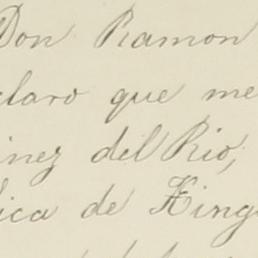 Don Ramon
claro que me
inez del Rio,
ica de Hing